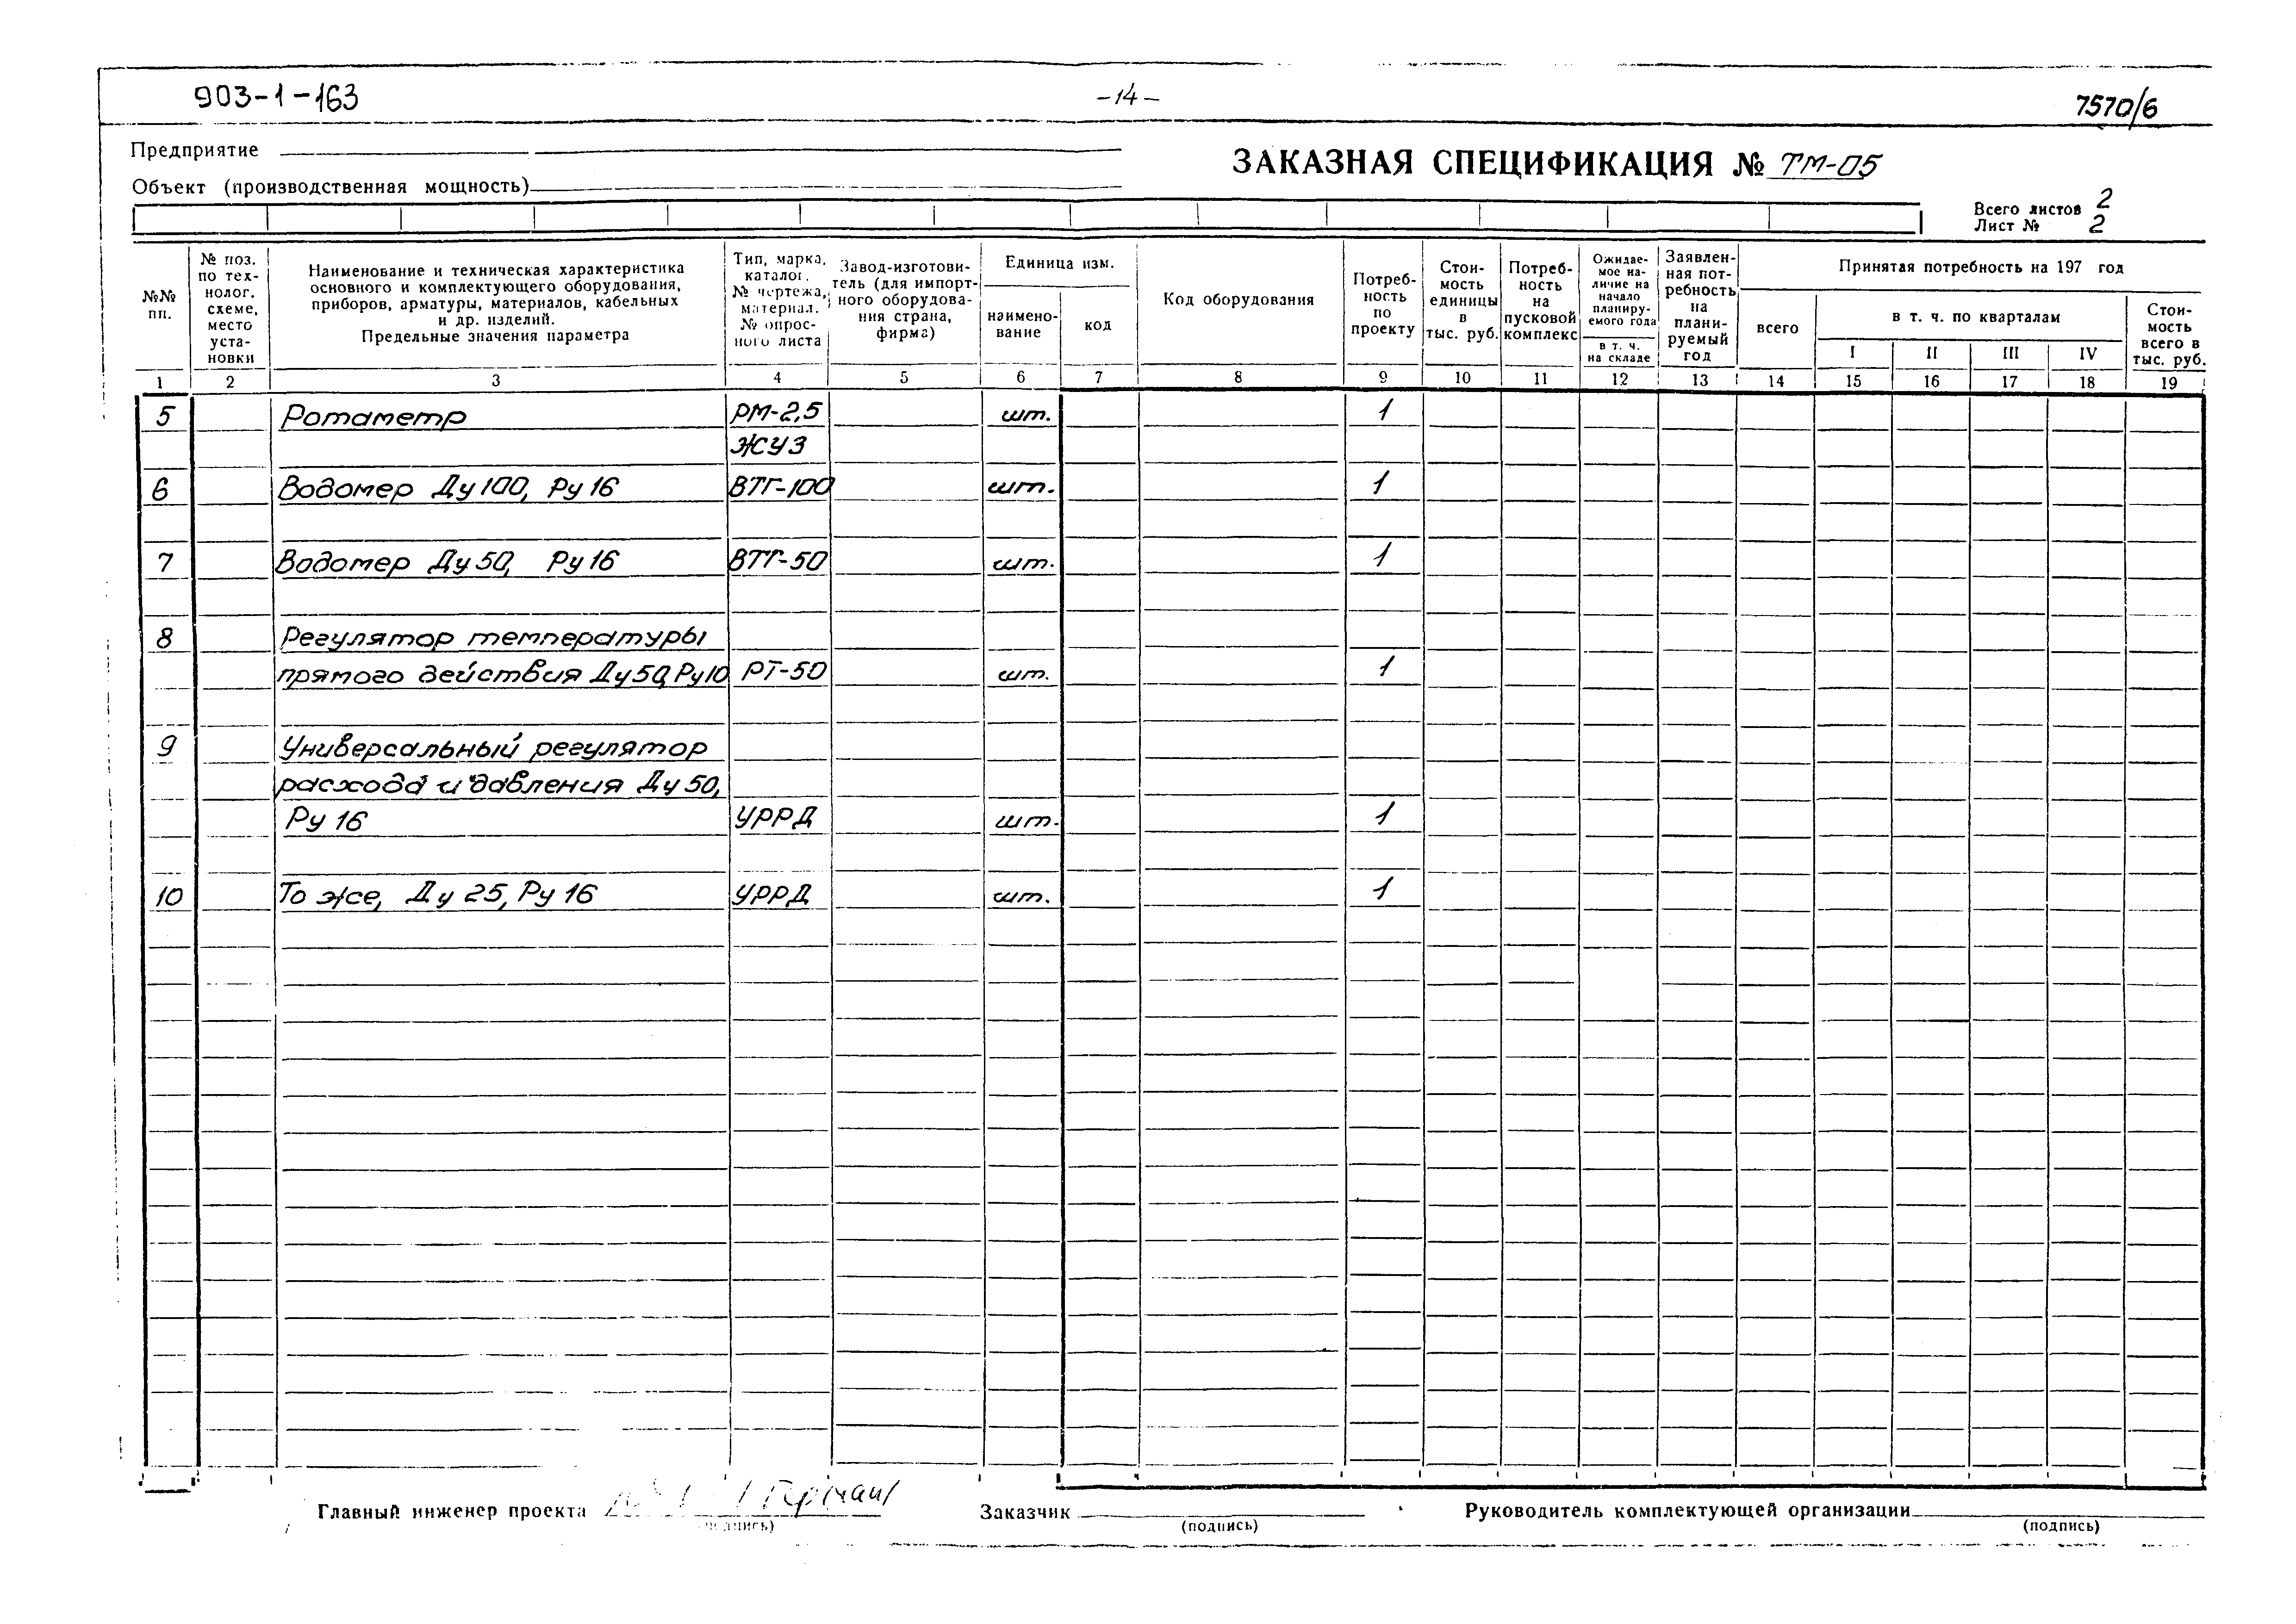 903-1-163
-14-
7570/6
Предприятие
ЗАКАЗНАЯ СПЕЦИФИКАЦИЯ № ТМ-05
Объект (производственная мощность)
Всего листов 2
Лист № 2
№№ пп.
№ поз. по технолог. схеме, место установки
Наименование и техническая характеристика
основного и комплектующего оборудования,
приборов, арматуры, материалов, кабельных
и др. изделий.
Предельные значения параметра
Тип, марка,
каталог.
№ чертежа,
материал.
№ опрос-
ного листа
Завод-изготови-
тель (для импорт-
ного оборудова-
ния страна,
фирма)
Единица изм.
наимено-
вание
код
Код оборудования
Потреб-
ность
по
проекту
Стои-
мость
единицы
в
тыс. руб.
Потреб-
ность
на
пусковой
комплекс
Ожидае-
мое на-
личие на
начало
планиру-
емого года
в т. ч.
на складе
Заявлен-
ная пот-
ребность
на
плани-
руемый
год
Принятая потребность на 197 год
всего
в т. ч. по кварталам
I II III IV
Стои-
мость
всего в
тыс. руб.
1 2 3 4 5 6 7 8 9 10 11 12 13 14 15 16 17 18 19
5 Ротаметр РМ-2,5 шт. 1
ЖУЗ
6 Водомер Ду 100, Ру 16 ВТГ-100 шт. 1
7 Водомер Ду 50, Ру 16 ВТГ-50 шт. 1
8 Регулятор температуры
прямого действия Ду 50, Ру 10 РТ-50 шт. 1
9 Универсальный регулятор
расхода и давления Ду 50,
Ру 16 УРРД шт. 1
10 То же, Ду 25, Ру 16 УРРД шт. 1
Главный инженер проекта
Заказчик
(подпись)
Руководитель комплектующей организации
(подпись)